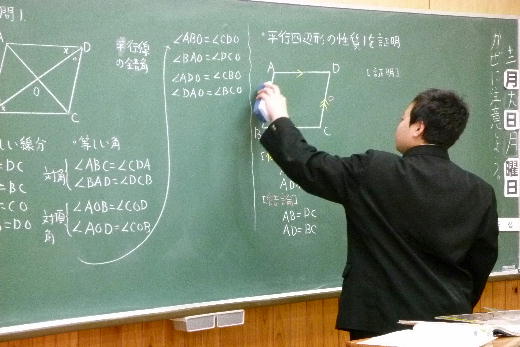 問1.
A
D
O
C
平行線
の錯角
∠ABO=∠CDO
∠BAO=∠DCO
∠ADO=∠CBO
∠DAO=∠BCO
しい線分
=DC
=BC
=CO
=DO
°等しい角
対角
∠ABC=∠CDA
∠BAD=∠DCB
対頂角
∠AOB=∠COD
∠AOD=∠COB
°平行四辺形の性質1を証明
A
D
B
C
[証明]
AD
[結論]
AB=DC
AD=BC
月
日
月
曜
日
かぜに注意しよう。